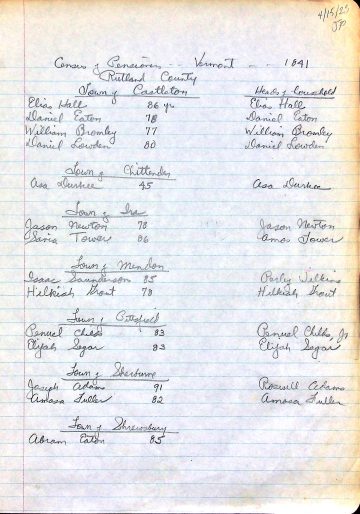 4/15/25
JPP
Census of Pensioners -- Vermont -- 1841
Rutland County
Town of Castleton Heads of Household
Elias Hall 86 yrs Elias Hall
Daniel Eaton 78 Daniel Eaton
William Bromley 77 William Bromley
Daniel Lowden 80 Daniel Lowden
Town of Chittenden
Asa Durkee 45 Asa Durkee
Town of Ira
Jason Newton 78 Jason Newton
Tower 86 Amos Tower
Town of Mendon
Isaac Saunderson 85 Perley Wilkins
Hilkiah Grout 78 Hilkiah Grout
Town of Pittsfield
Penuel Childs 83 Penuel Childs, Jr
Elijah Segar 83 Elijah Segar
Town of Sherburne
Joseph Adams 91 Roswell Adams
Amasa Fuller 82 Amasa Fuller
Town of Shrewsbury
Abram Eaton 85